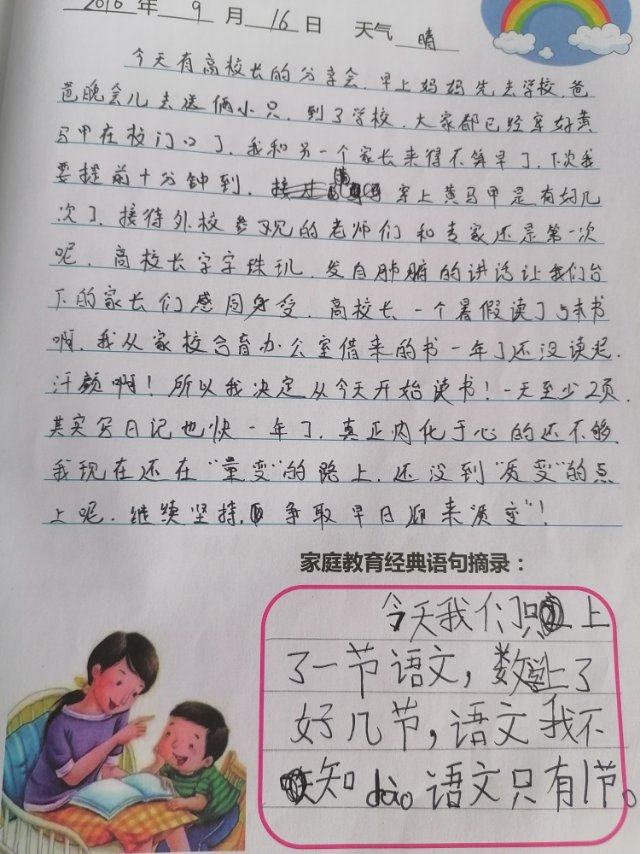 2016年 9 月 16 日 天气 晴
今天有高校长的分享会.早上妈妈先去学校.爸
爸晚会儿去送俩小只.到了学校.大家都已经穿好黄
马甲在校门口了.我和另一个家长来得不算早了.下次我
要提前十分钟到. 穿上黄马甲是有好几
次了.接待外校参观的老师们和专家还是第一次
呢.高校长字字珠玑.发自肺腑的讲话让我们台
下的家长们感同身受.高校长一个暑假读了5本书
啊.我从家校合育办公室借来的书一年了还没读起.
汗颜啊!所以我决定从今天开始读书!一天至少2页.
其实写日记也快一年了.真正内化于心的还不够.
我现在还在"量变"的路上.还没到"质变"的点
上呢.继续坚持.争取早日迎来质变"!
家庭教育经典语句摘录：
今天我们只上
了一节语文,数学上了
好几节,语文我不
知dào语文只有1节。